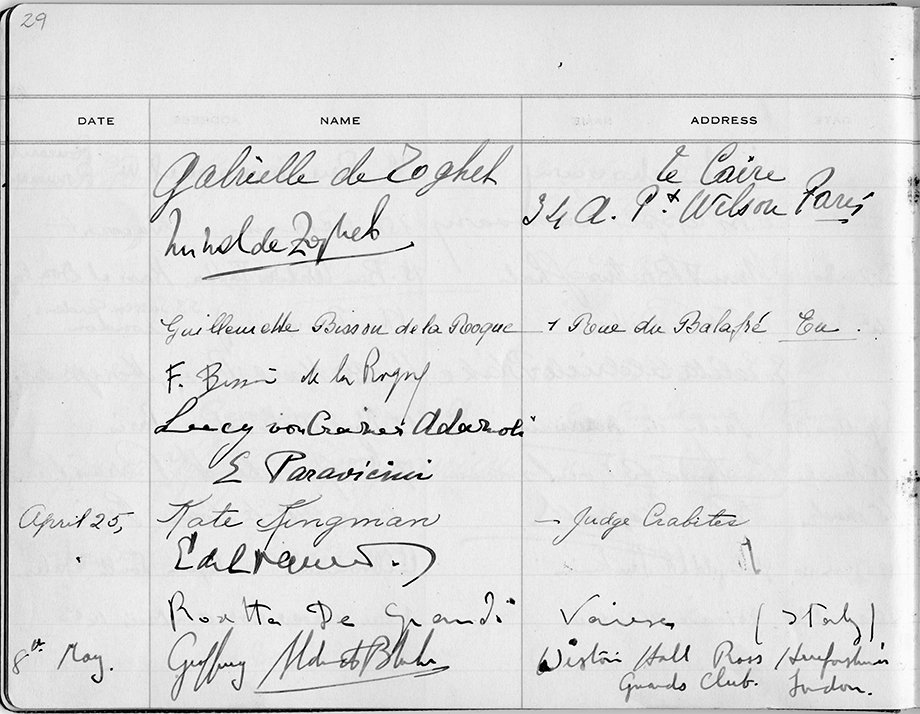 29
DATE NAME ADDRESS
Gabrielle de Zogheb Le Caire
34 A. Pt Wilson Paris
de Zogheb
Guillemette Bisson de la Roque 1 Rue du Balafré Eu.
F. Bisson de la Roque
Lucy von Adamoli
E Paravicini
April 25, Kate Kingman - Judge Crabitès
De Grandi Varese (Italy)
8th May. Geoffrey Blake Wiston Hall Ross Herefordshire
Guards Club. London.